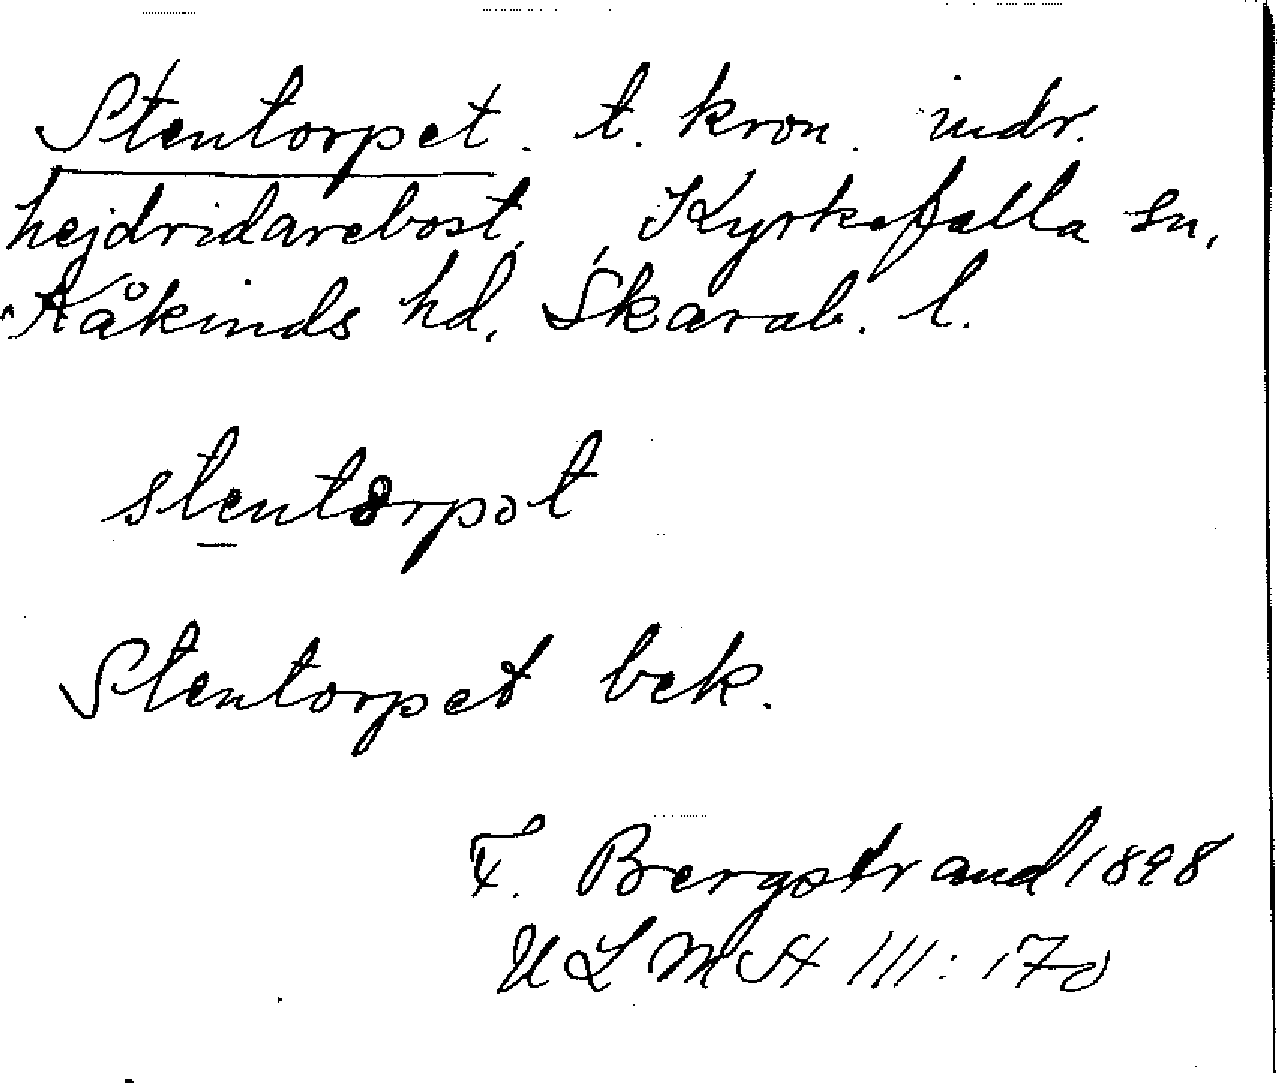 Stentorpet. t. kron. indr.
hejdridarebost. Kyrkefalla sn,
Kåkinds hd, Skarab. l.
stentorpət
Stentorpet bek.
F. Bergstrand 1898
ULMA 111:170